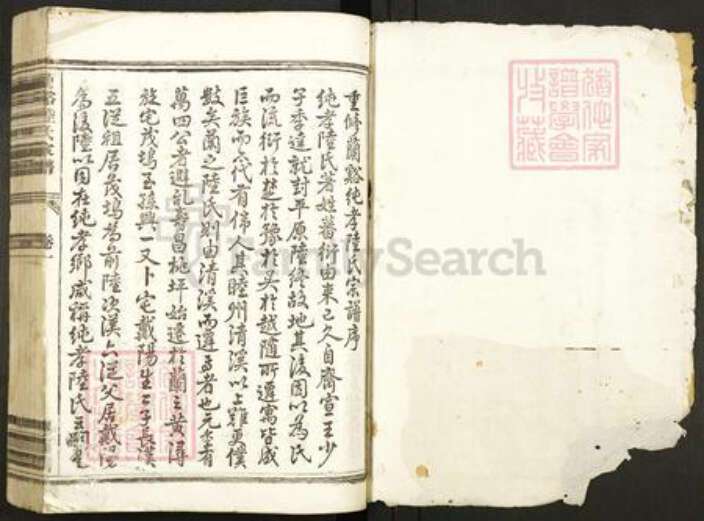 重修蘭谿純孝陸氏宗譜序
純孝陸氏著姓蕃衍由來已久自齊宣王少
子季達就封平原陸終故地其後因以為氏
而流衍於楚於豫於吳於越隨所遷寓皆成
巨族而代有偉人其睦州清溪以上難更僕
數矣蘭之陸氏則由清溪而遷者也元季有
萬四公者避亂壽昌桃坪始遷於蘭之黃潯
放宅茂塢至孫興一又卜宅戴陽生二子長漢
五從祖居茂塢為前陸次漢六從父居戴
為後陸以同在純孝鄉咸稱純孝陸氏
陸氏宗譜
卷一
猶他家譜學會珍藏
FamilySearch